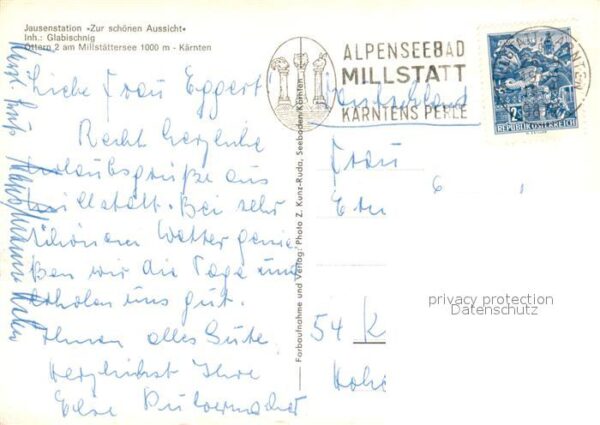 Jausenstation »Zur schönen Aussicht«
Inh.: Glabischnig
Öttern 2 am Millstättersee 1000 m - Kärnten
Liebe Frau Eggert
Recht herzliche
Urlaubsgrüße aus
Millstatt. Bei sehr
schönem Wetter genie
ßen wir die Tage und
erholen uns gut.
Ihnen alles Gute.
Herzlichst Ihre
Else
Farbaufnahme und Verlag: Photo Z. Kunz-Ruda, Seeboden/Kärnten
ALPENSEEBAD
MILLSTATT
KÄRNTENS PERLE
Deutschland
2
REPUBLIK ÖSTERREICH
Frau
54 K
privacy protection
Datenschutz